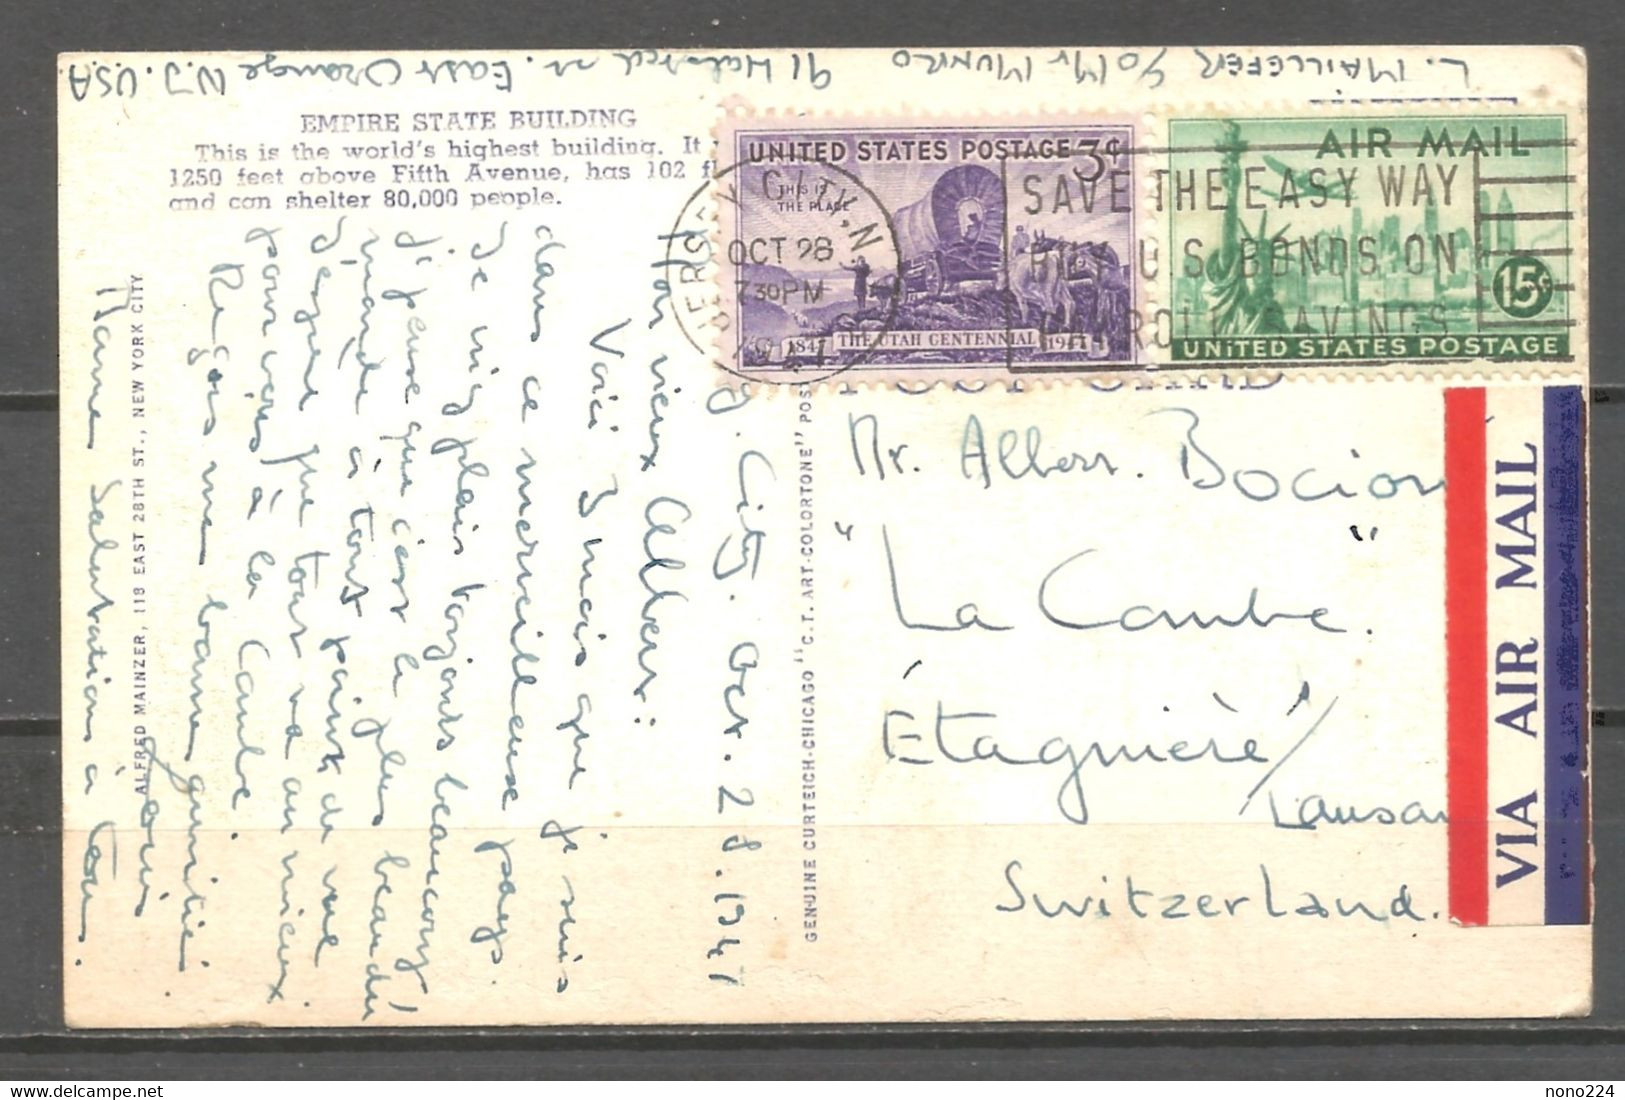 L. MAILLEFER c/o Mr MUNRO 91 Halsted st. East Orange N.J. U.S.A.
EMPIRE STATE BUILDING
This is the world's highest building. It
1250 feet above Fifth Avenue, has 102 fl
and can shelter 80,000 people.
UNITED STATES POSTAGE 3¢
THIS IS
THE PLACE
1847 THE UTAH CENTENNIAL 1947
AIR MAIL
15¢
UNITED STATES POSTAGE
JERSEY CITY, N.J.
OCT 28
7 30 PM
1947
SAVE THE EASY WAY
BUY U.S. BONDS ON
PAYROLL SAVINGS
J. City. Oct. 28. 1947
Mon vieux Albert:
Voici 3 mois que je suis
dans ce merveilleuse pays.
Je m'y plais toujours beaucoup!
J'pense que c'est le plus beau du
monde à tout point de vue
J'espère que tout va au mieux
pour vous à la Combe.
Reçois une bonne amitié
Louis
Bonnes Salutations à tous.
ALFRED MAINZER, 118 EAST 28TH ST., NEW YORK CITY
GENUINE CURTEICH-CHICAGO "C.T. ART-COLORTONE" POS
Mr. Albert. Bocion
"La Combe."
Etagnière/
Lausan
Switzerland.
VIA AIR MAIL
nono224